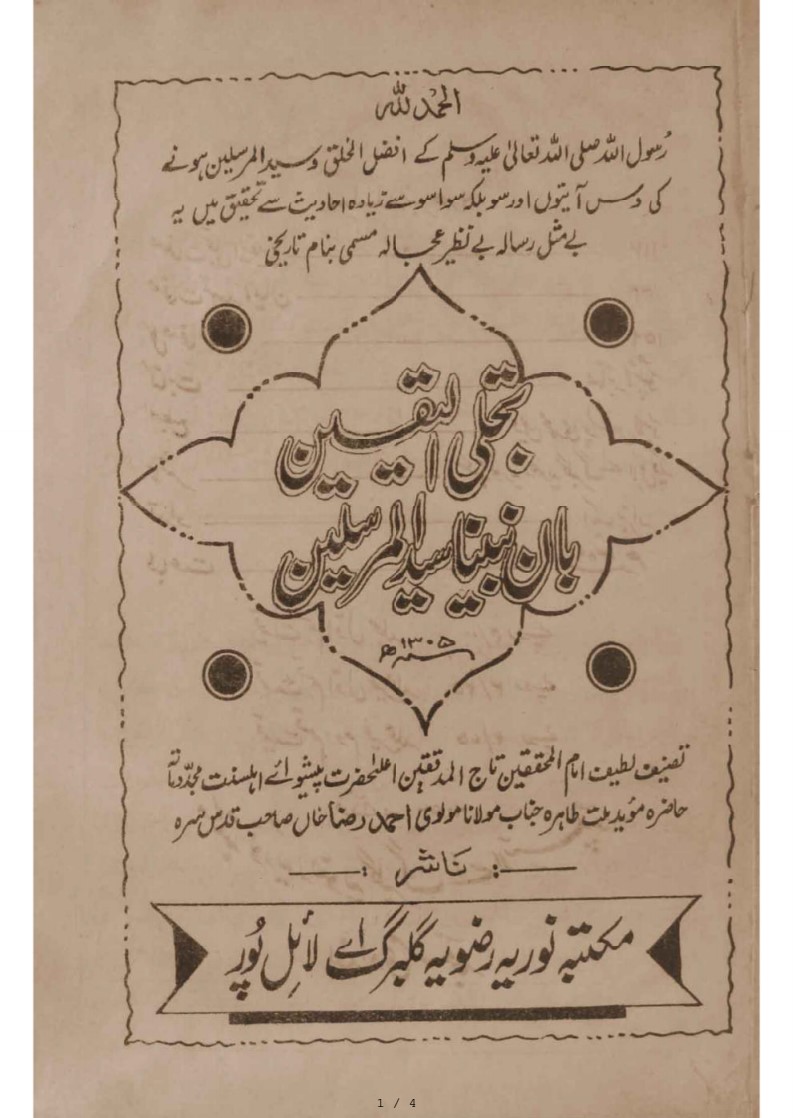 الحمد للہ
رسول اللہ صلی اللہ تعالیٰ علیہ وسلم کے افضل الخلق و سید المرسلین ہونے
کی دس آیتوں اور سو بلکہ سوا سو سے زیادہ احادیث سے تحقیق میں یہ
بے مثل رسالہ بے نظیر عجالہ مسمی بنام تاریخی
تجلی الیقین
بان نبینا سید المرسلین
۱۳۰۵ھ
تصنیف لطیف امام المحققین تاج المدققین اعلیٰحضرت پیشوائے اہلسنت مجدد مائۃ
حاضرہ مؤید ملت طاہرہ جناب مولانا مولوی احمد رضا خاں صاحب قدس سرہ
ناشر
مکتبہ نوریہ رضویہ گلبرگ اے لائل پور
1 / 4